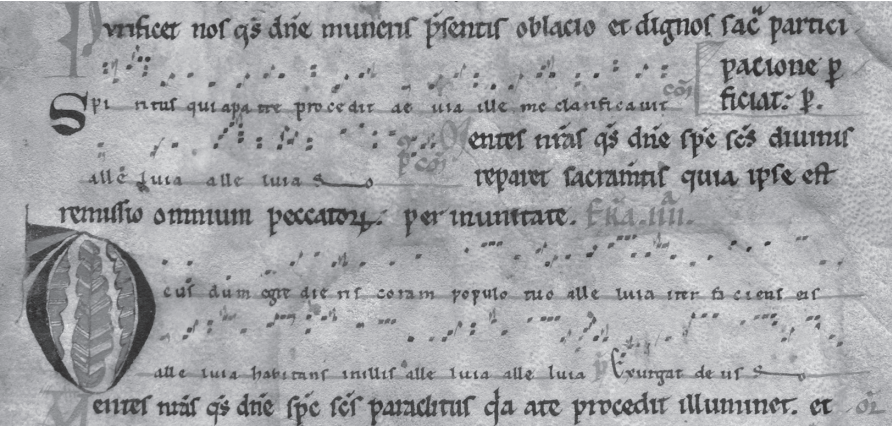 Purificet nos qs̄ dn̄e muneris p̄sentis oblacio et dignos sac̄ partici
pacione ꝑ
ficiat. ꝑ. com̄
Spiritus qui a patre procedit ae uia ille me clarificauit
P̄ com̄ Mentes nr̄as qs̄ dn̄e sp̄c sc̄s diuinus
alle luia alle luia s o reparet sacram̄tis quia ipse est
remissio omnium peccatoꝝ. per inunitate. fr̄ia .iiii.
Deus dum egre die ris coram populo tuo alle luia iter fa ciens eis
alle luia habitans inillis alle luia alle luia p̄ Exurgat de us s o
Mentes nr̄as qs̄ dn̄e sp̄c sc̄s paraclitus q̄ a te procedit illuminet. et